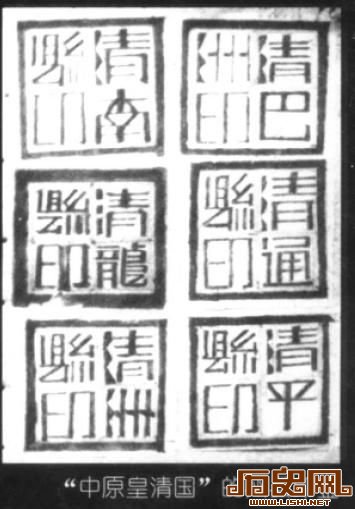 清
縣印
清巴
洲印
清龍
縣印
清通
縣印
清
縣印
清平
縣印
“中原皇清国”的
历史网